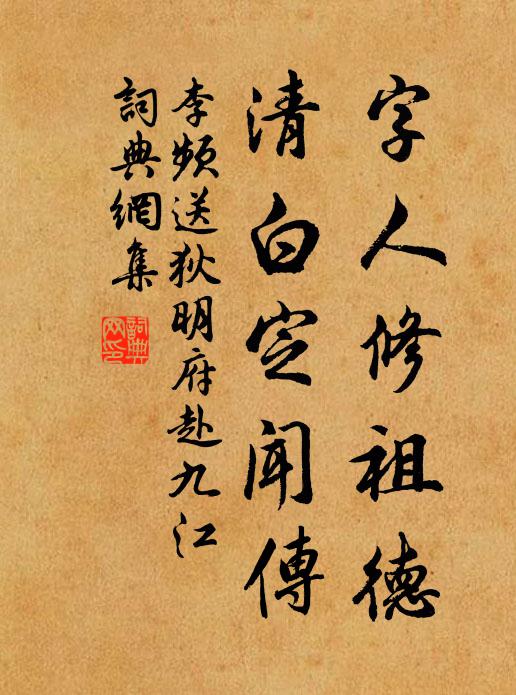 字人修祖德
清白定聞傳
李頻送狄明府赴九江
詞典網集
詞典
网印